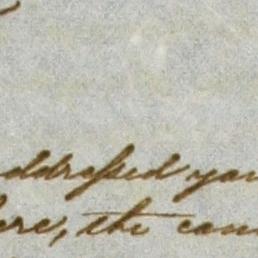 ddressed you
ere, the com